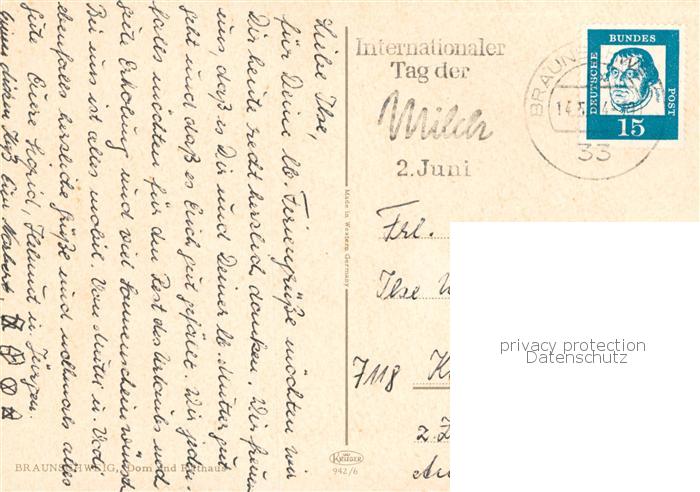 Liebe Ilse,
für Deine lb. Feriengrüße möchten wir
Dir heute recht herzlich danken. Wir freuen
uns, daß es Dir und Deiner lb. Mutter gut
geht und daß es Euch gut gefällt. Wir jeden-
falls möchten für den Rest des Urlaubs noch
gute Erholung und viel Sonnenschein wünschen
Bei uns ist alles mobil. Von Mutti u. Vati
ebenfalls herzliche Grüße und nochmals alles
Gute Eure Sigrid, Helmut u. Jürgen.
Internationaler
Tag der
Milch
2. Juni
BRAUNSCHWEIG
33
DEUTSCHE BUNDESPOST
15
Made in Western Germany
Frl.
Ilse
7118
BRAUNSCHWEIG, Dom und Rathaus
KRÜGER
942/6
privacy protection
Datenschutz